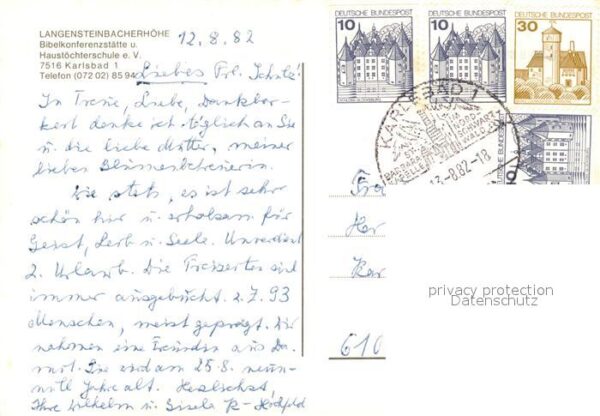 LANGENSTEINBACHERHÖHE
Bibelkonferenzstätte u.
Haustöchterschule e. V.
7516 Karlsbad 1
Telefon (072 02) 85 94
12.8.82
Liebes Frl. Schulz!
In Treue, Liebe, Dankbar-
keit denke ich täglich an Sie
u. die liebe Mutter, meiner
lieben Blumenbetreuerin.
Wie stets, es ist sehr
schön hier u. erholsam für
Geist, Leib u. Seele. Unverdient
2. Urlaub. Die Freizeiten sind
immer ausgebucht. z.Z. 93
Menschen, meist geprägt. Wir
nahmen eine Freundin aus Da.
mit. Sie wird am 25.8. neun-
zig Jahre alt. Herzlichst,
Ihre Wilhelm u. Gisela
10
DEUTSCHE BUNDESPOST
10
DEUTSCHE BUNDESPOST
30
DEUTSCHE BUNDESPOST
10
DEUTSCHE BUNDESPOST
KARLSBAD 1
IM
NORD-
SCHWARZ-
WALD
BARBARA-
KAPELLE
13.-8.82-18
Fra
Her
Kar
610
privacy protection
Datenschutz